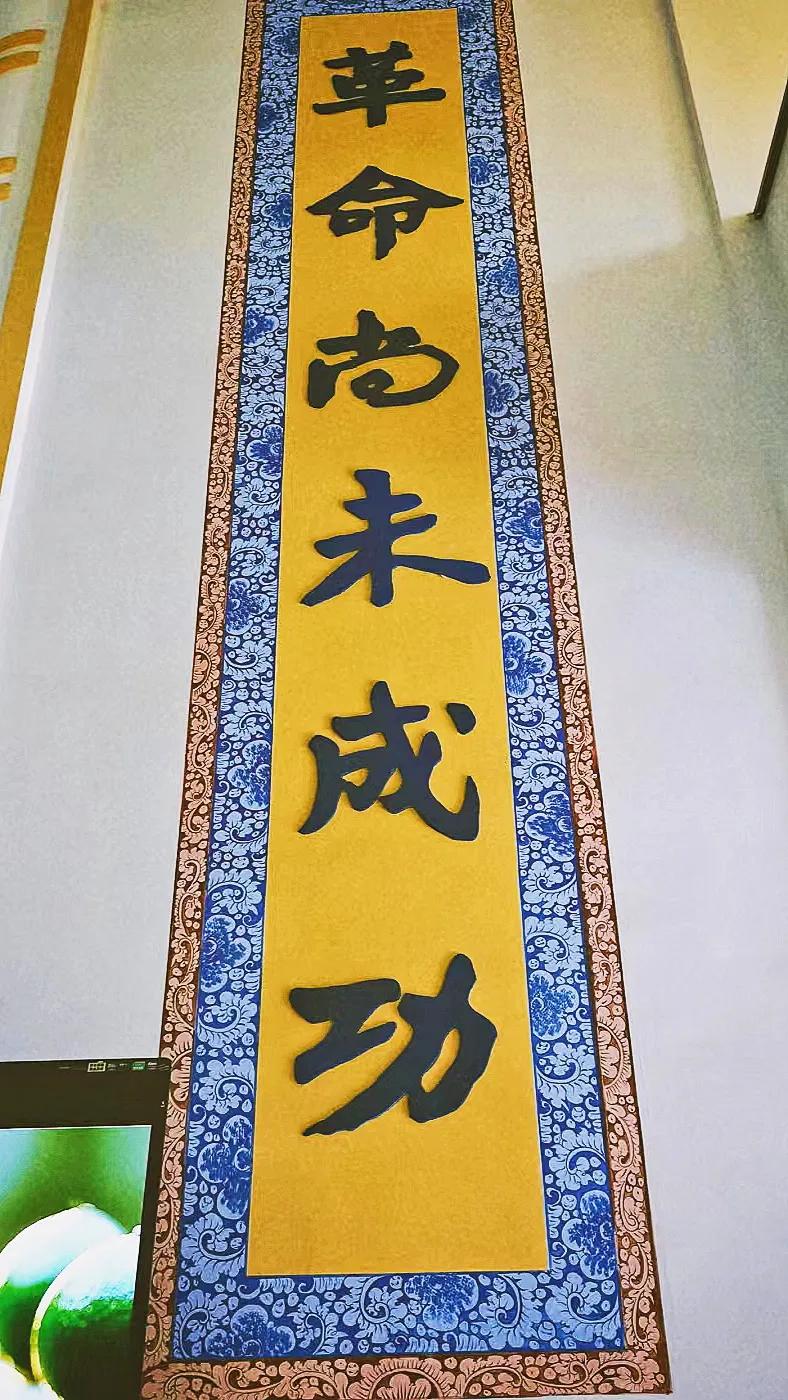 革命尚未成功